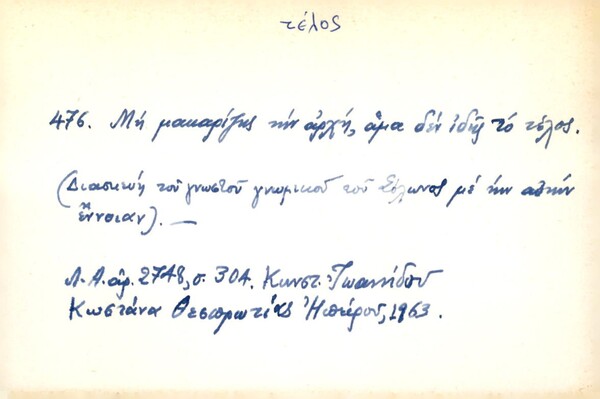 τέλος
476. Μή μακαρίζης τήν ἀρχή, ἅμα δέν ἰδῇς τό τέλος.
(Διασκευή τοῦ γνωστοῦ γνωμικοῦ τοῦ Σόλωνος μέ τήν αὐτήν
ἔννοιαν). —
Λ.Α. ἀρ. 2748, σ. 304. Κωνστ. Ἰωαννίδου
Κωστάνα Θεσπρωτίας Ἠπείρου, 1963.